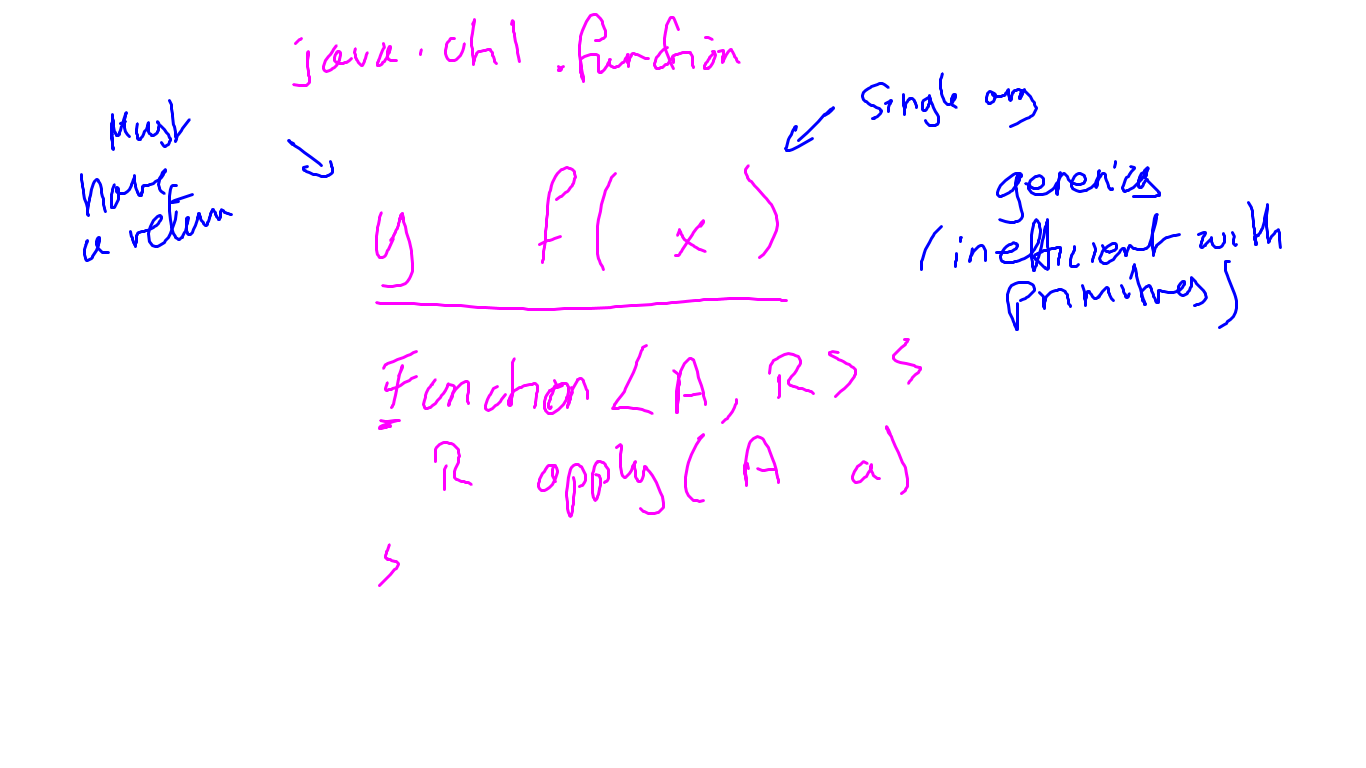 java.util.function
Must
have
a return
Single arg
y f(x)
generics
(inefficient with
primitives)
Function<A, R> {
R apply(A a)
}